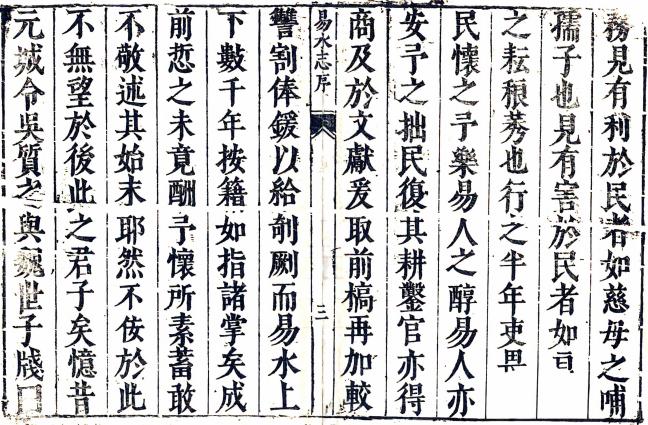 務見有利於民者如慈母之哺
孺子也見有害於民者如
之耘稂莠也行之半年吏畏
民懷之予樂易人之醇易人亦
安予之拙民復其耕鑿官亦得
商及於文獻爰取前槁再加較
易水志序
三
讐割俸鋟以給剞劂而易水上
下數千年按籍如指諸掌矣成
前悊之未竟酬予懷所素蓄敢
不敬述其始末耶然不佞於此
不無望於後此之君子矣憶昔
元城令吳質之與魏世子牋曰